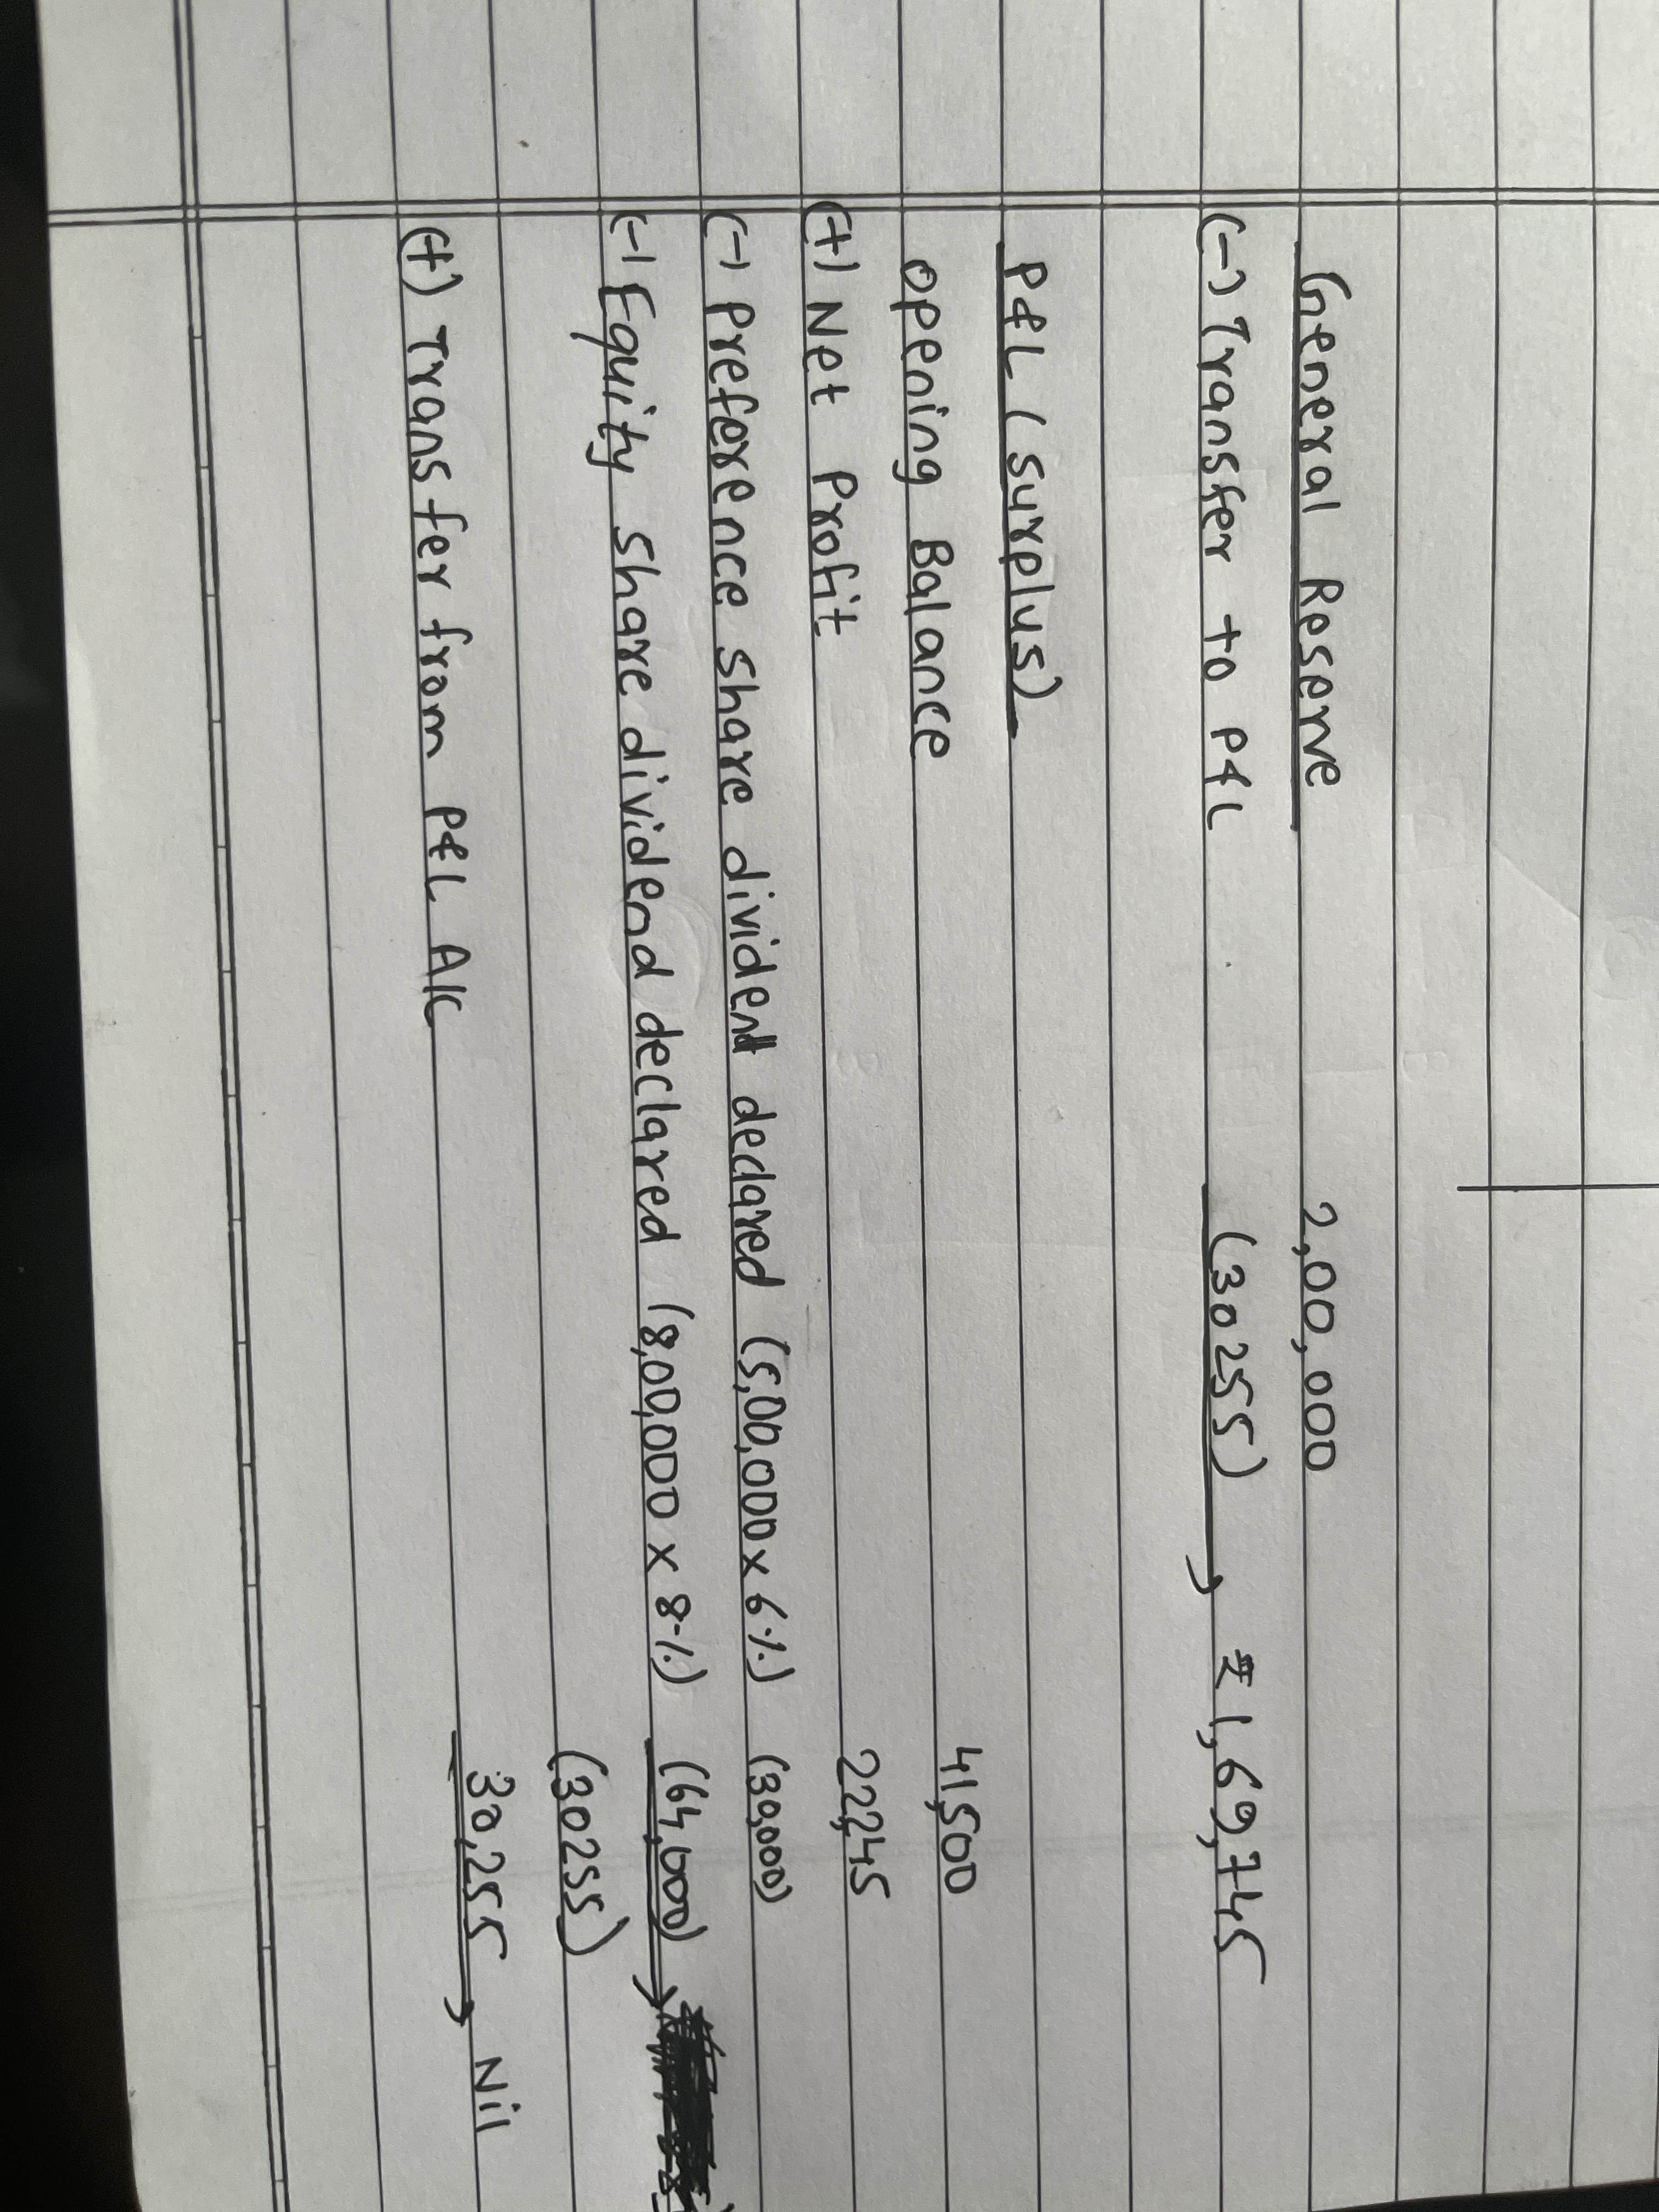 General Reserve 2,00,000
(-) Transfer to P&L (30255) → ₹1,69,745
P&L (Surplus)
Opening Balance 41,500
(+) Net Profit 22,245
(-) Preference share dividend declared (5,00,000 x 6%) (30,000)
(-) Equity share dividend declared (8,00,000 x 8%) (64,000) →
(30255)
(+) Transfer from P&L A/C 30,255 → Nil